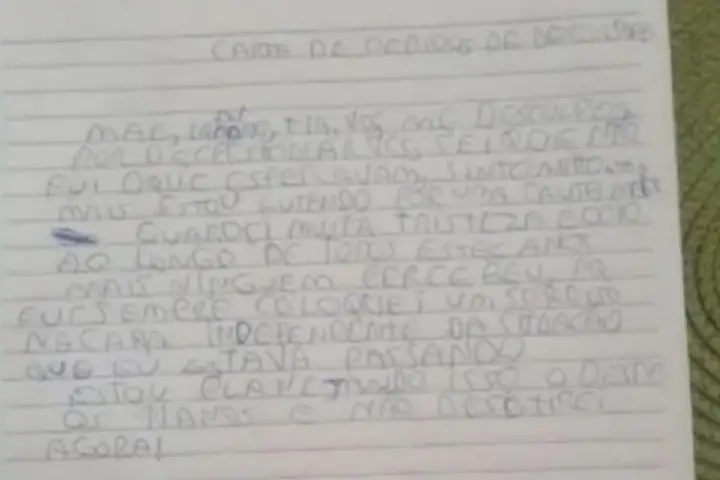 CARTA DE PEDIDOS DE
MAE, TIA, ME DESCULPEM
POR SEI QUE NÃO
FUI OQUE ESPERAVAM, SINTO
MAIS ESTOU LUTANDO POR UMA
GUARDEI MUITA TRISTEZA E ODIO
AO LONGO DE TODOS ESTES ANOS
MAIS NINGUEM PERCEBEU PQ
EU SEMPRE COLOQUEI UM SORRISO
NA CARA INDEPENDENTE DA SITUAÇÃO
QUE EU ESTAVA PASSANDO
ESTOU PLANEJANDO ISSO DESDE
OS 11 ANOS E NÃO DESISTIREI
AGORA!